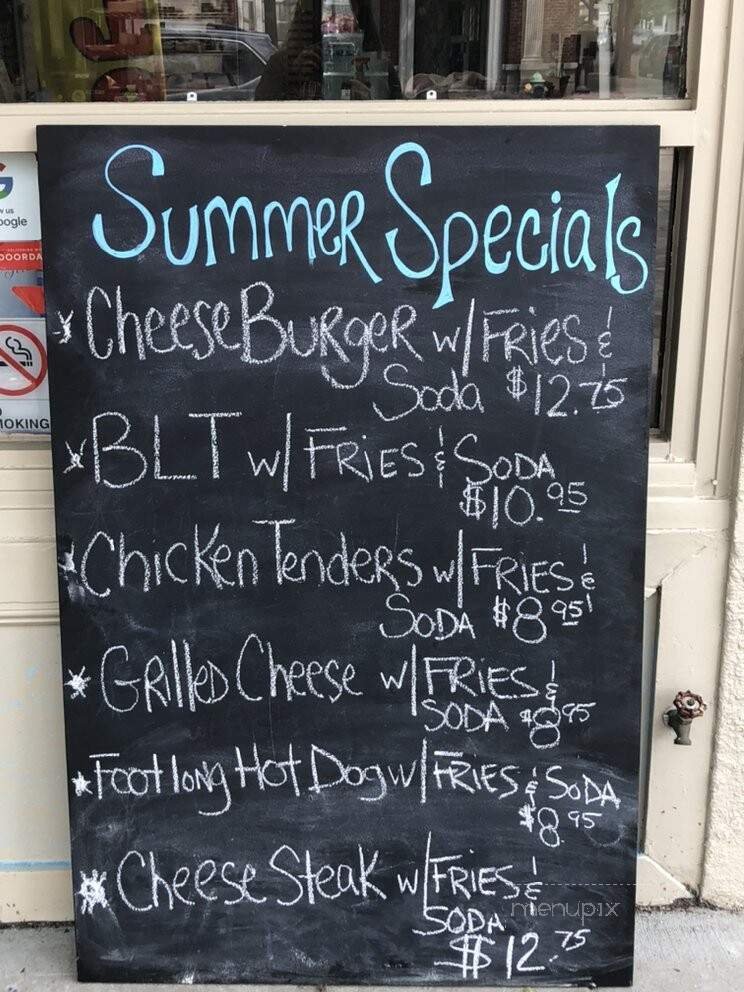 Summer Specials
* CheeseBurger w/ Fries &
Soda $12.75
* BLT w/ Fries & Soda
$10.95
* Chicken Tenders w/ Fries &
Soda $8.95
* Grilled Cheese w/ Fries &
Soda $8.95
* Foot long Hot Dog w/ Fries & Soda
$8.95
* Cheese Steak w/ Fries &
Soda
$12.75
menupix
us
oogle
DOORDA
OKING